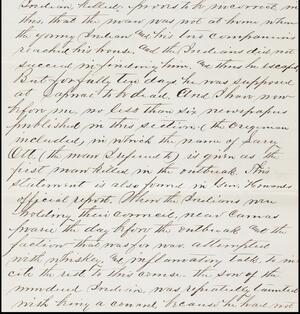 Indian killed, proves to be incorrect in
this, that the man was not at home when
the young Indian and his two companions
reached his house, and the Indians did not
succeed in finding him, and thus he escaped
But for fully ten days he was supposed
at Lapwai to be dead. And I have now
before me, no less than six newspapers
published in this section, (the Oregonian
included,) in which the name of Larry
Ott, (the man I refer to) is given as the
first man killed in the outbreak. This
statement is also found in Gen. Howards
official report. When the Indians were
holding their council, near Camas
prairie the day before the outbreak and the
faction that was for war, attempted
with whiskey, and inflammatory talk to in
cite the rest to this course the son of the
murdered Indian was repeatedly taunted
with being a coward because he had not